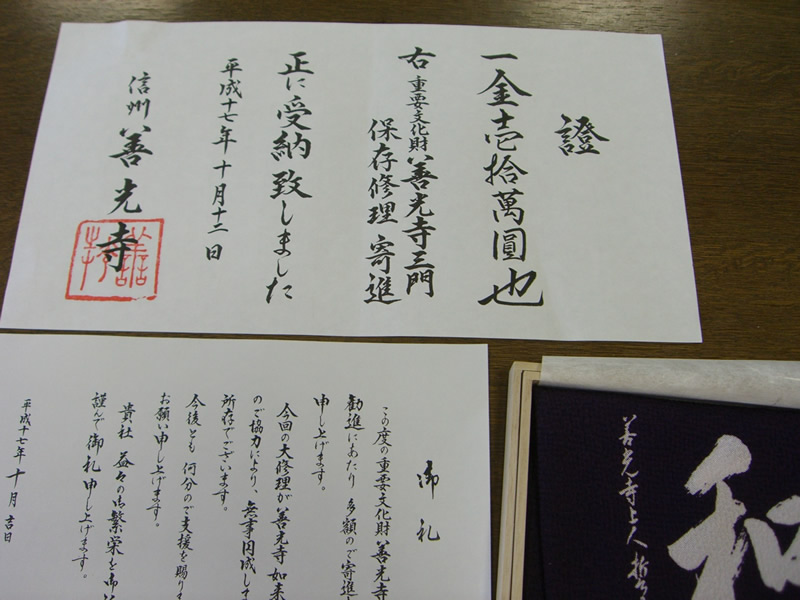 證
一金壱拾萬圓也
右重要文化財善光寺三門
保存修理寄進
正に受納致しました
平成十七年十月十二日
信州善光寺
御礼
この度の重要文化財善光寺
勧進にあたり 多額のご寄進
申し上げます。
今回の大修理が善光寺如来
のご協力により、無事円成しま
所存でございます。
今後とも何分のご支援を賜りま
お願い申し上げます。
貴社 益々の御繁栄を御
謹んで御礼申し上げます。
平成十七年十月吉日
和
善光寺上人